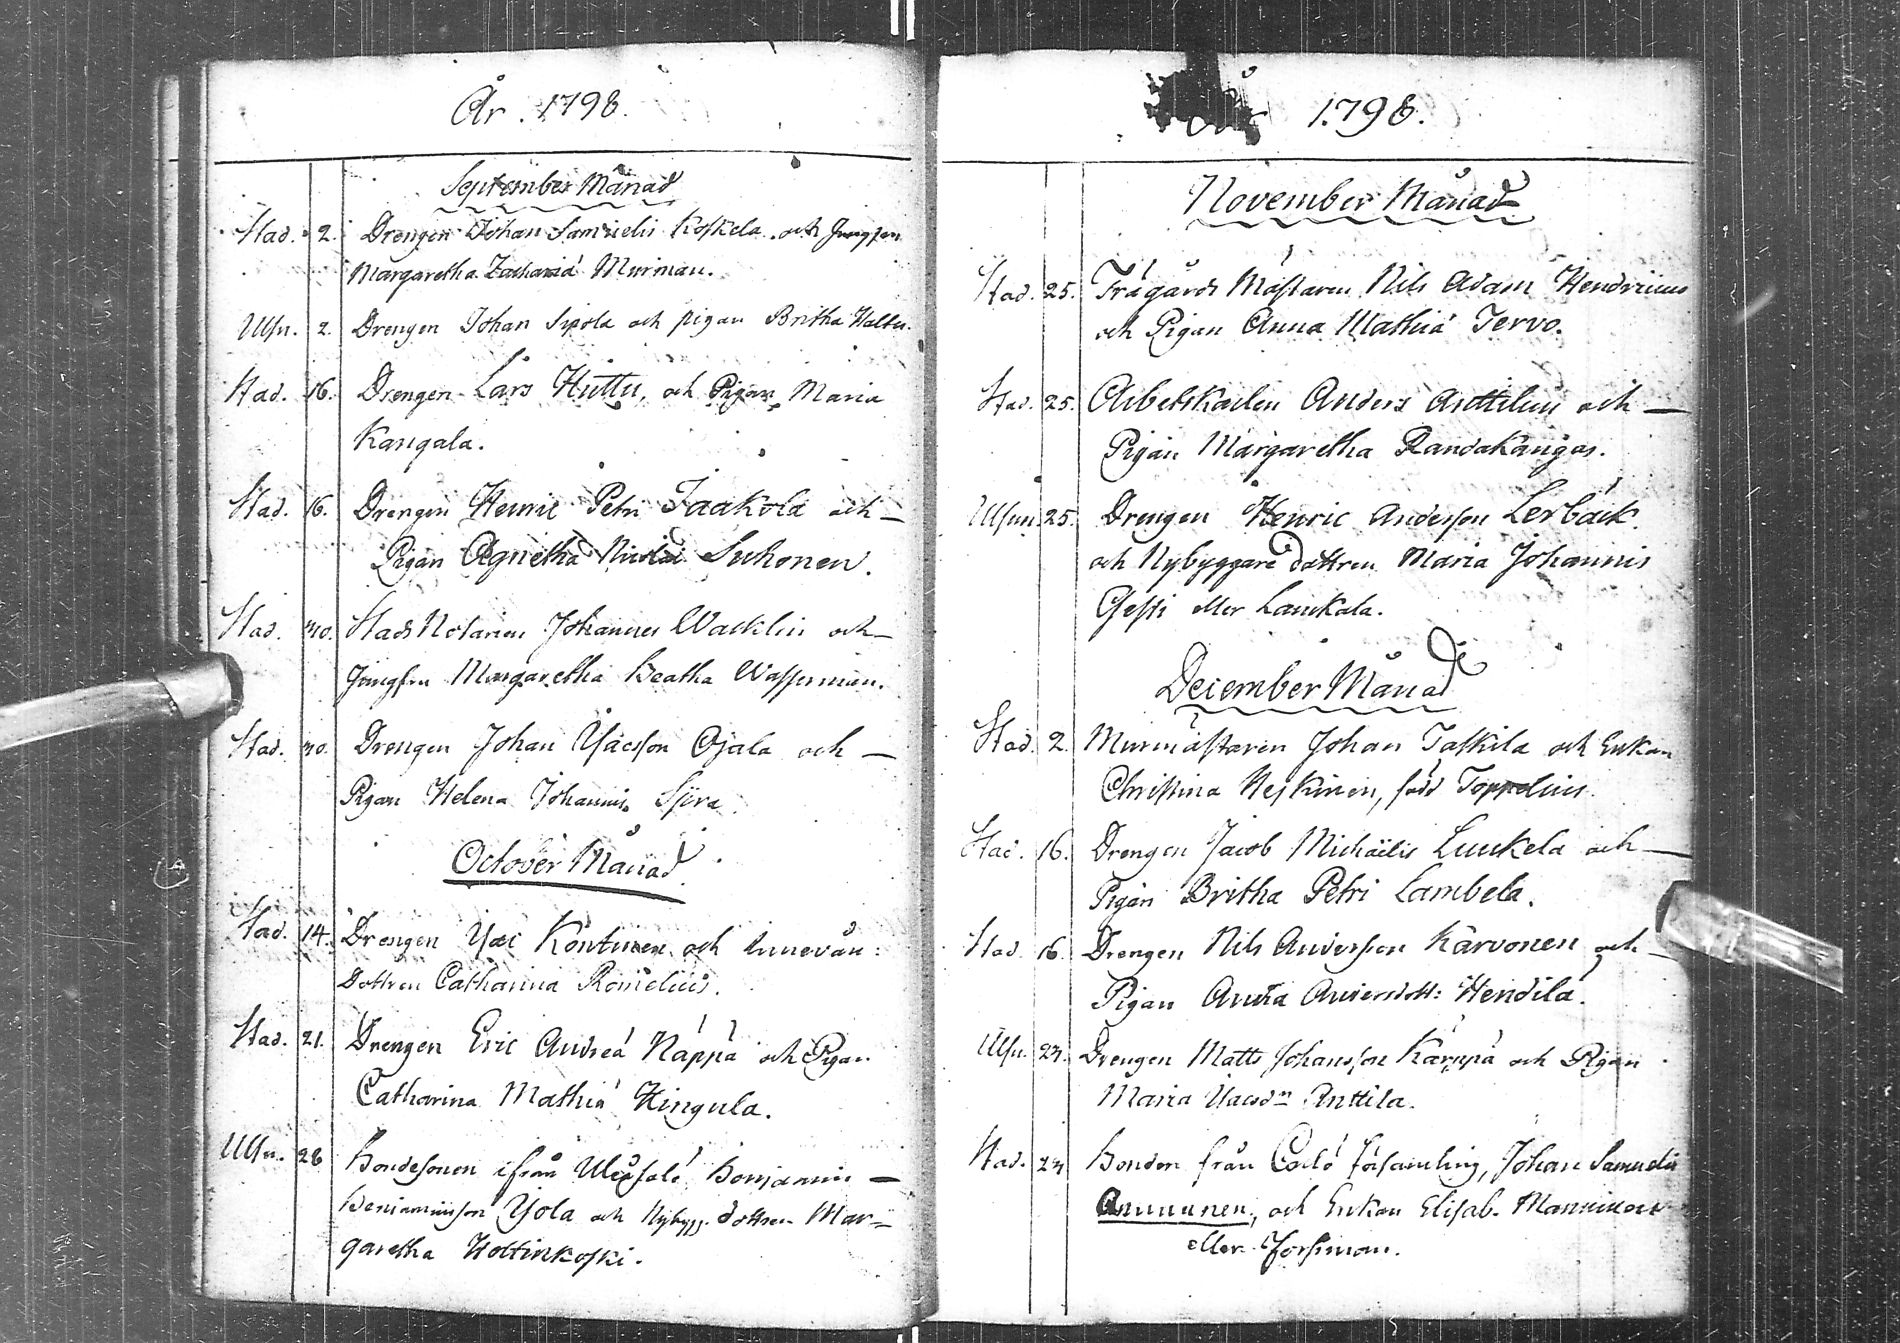 År. 1798.
September Månad
Stad. 2. Drengen Johan Samuelis Koskela och Jungfru
Margaretha Zachariä Murman.
Ulfn. 2. Drengen Johan Sipola och pigan Britha Haltu.
Stad. 16. Drengen Lars Huttu, och Pigan Maria
Kangala.
Stad. 16. Drengen Henric Petri Jaakola och —
Pigan Agnetha Nicolai Suhonen.
Stad. 30. Stads Notarien Johannes Wacklin och —
Jungfru Margaretha Beatha Wasserman.
Stad. 30. Drengen Johan Isacsson Ojala och —
Pigan Helena Johannis
October Månad.
Stad. 14. Drengen Isac Kontinen och Innevån:
Dottren Catharina Romelius.
Stad. 21. Drengen Eric Andreä Näppä och Pigan
Catharina Mathiä Hingula.
Ulfn. 28 Bondesonen ifrån Uleåsalo Benjamin —
Beniaminsson Yola och Nybygg. dottren Mar=
garetha Holtinkoski.
År 1798.
November Månad
Stad. 25. Trägårds Mästaren Nils Adam Hendricius
och Pigan Anna Mathiä Tervo.
Stad. 25. Arbetskarlen Anders Anttilus och —
Pigan Margaretha Randakangas.
Ulfn. 25. Drengen Henric Andersson Lerbäck
och Nybyggare dottren Maria Johannis
eller Laukala.
December Månad
Stad. 2 Murmästaren Johan Taskila och Enkan
Christina Heskinen, född Toppelius.
Stad. 16. Drengen Jacob Michaëlis Luukela och —
Pigan Britha Petri Lambela.
Stad 16. Drengen Nils Andersson Karvonen och —
Pigan Anna Andersdott: Hendilä.
Ulfn. 23. Drengen Matts Johansson Kärppä och Pigan
Maria Isacsdr Anttila.
Stad. 23 Bonden från Carlö församling, Johan Samuelis
och Enkan Elisab. Manninen
eller Forsman.